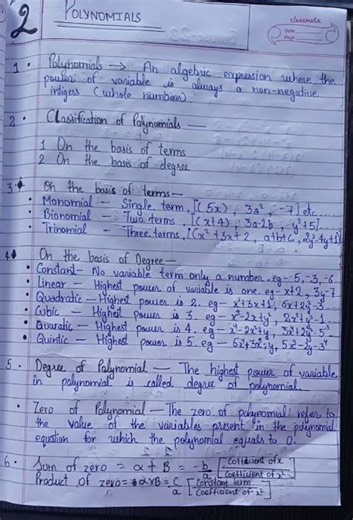 2
POLYNOMIALS
classmate
Date
Page
1. Polynomials → An algebraic expression where the
power of variable is always a non-negative
intigers (whole numbers).
2. Classification of Polynomials —
1 On the basis of terms
2 On the basis of degree
3. On the basis of terms —
• Monomial — Single term, [(5x), 3a², -7] etc.
• Bionomial — Two terms. [(x+4), 3a-2b, y²+5]
• Trinomial — Three terms, [(x²+3x+2, a+b+c, 2y²-4y+1)]
4. On the basis of Degree —
• Constant — No variable term only a number. eg - 5, -3, -6
• Linear — Highest power of variable is one. eg - x+2, 3y-7
• Quadratic — Highest power is 2. eg -
• Cubic — Highest power is 3. eg -
• Quaratic — Highest power is 4. eg -
• Quintic — Highest power is 5. eg -
5. Degree of Polynomial — The highest power of variable
in polynomial is called degree of polynomial.
• Zero of Polynomial — The zero of polynomial refer to
the value of the variables present in the polynomial
equation for which the polynomial equals to 0.
6. Sum of zero = α + β = -b/a [Coefficient of x / Coefficient of x²]
Product of zero = αxβ = c/a [Constant term / Coefficient of x²]